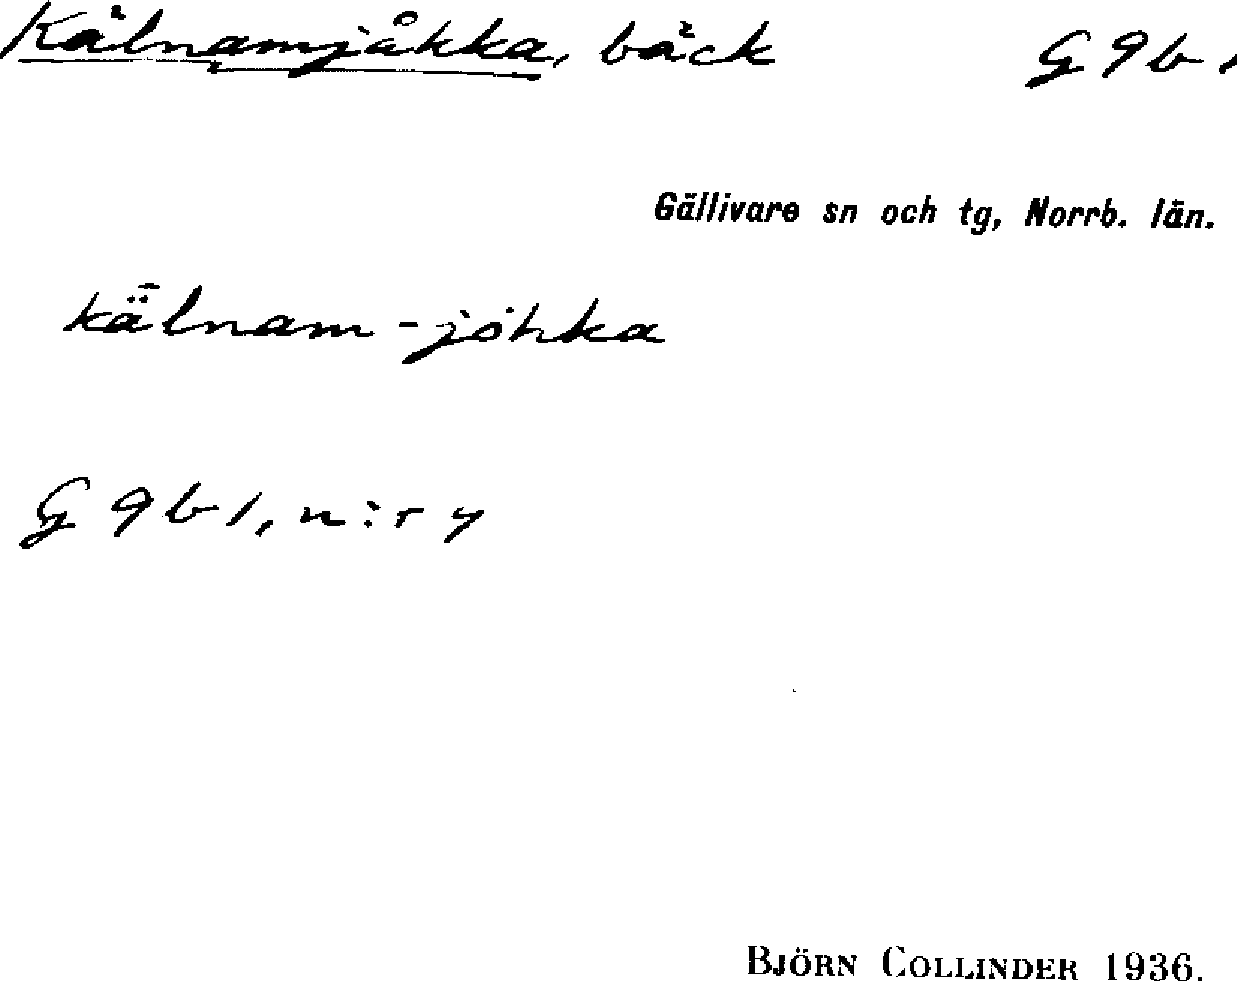 Kälnamjåkka, bäck G 9 b 1
Gällivare sn och tg, Norrb. län.
kǟlnam-jòhka
G 9 b 1, n:r 4
BJÖRN COLLINDER 1936.